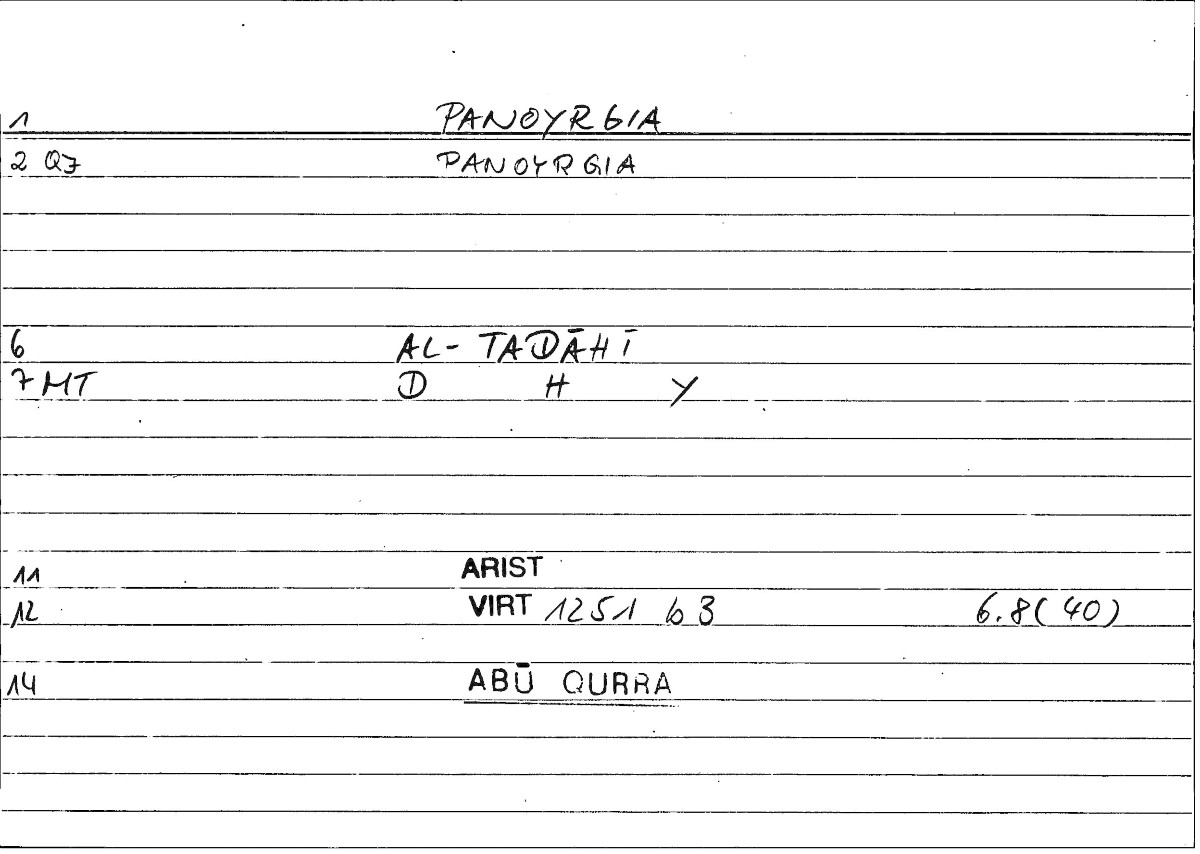 1 PANOYRGIA
2 QZ PANOYRGIA
6 AL-TADĀHĪ
7 MT D H Y
11 ARIST
12 VIRT 1251 b3 6.8(40)
14 ABŪ QURRA